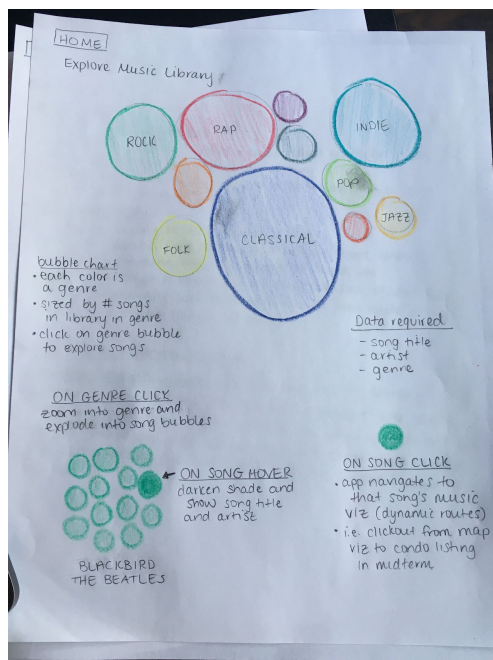 HOME
Explore Music Library
ROCK
RAP
INDIE
POP
JAZZ
FOLK
CLASSICAL
bubble chart
• each color is
a genre
• sized by # songs
in library in genre
• click on genre bubble
to explore songs
Data required
- song title
- artist
- genre
ON GENRE CLICK
zoom into genre and
explode into song bubbles
ON SONG HOVER
darken shade and
show song title
and artist
BLACKBIRD
THE BEATLES
ON SONG CLICK
• app navigates to
that song's music
viz (dynamic routes)
• i.e. clickout from map
viz to condo listing
in midterm